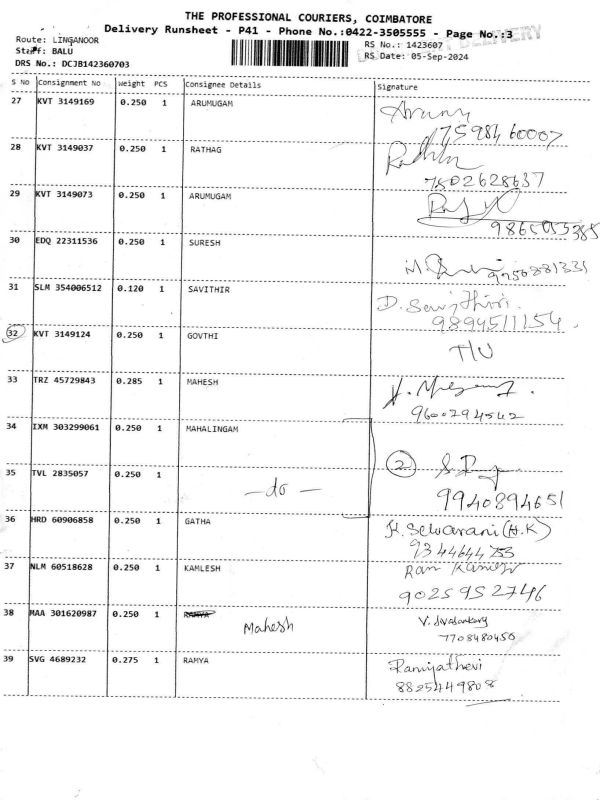 THE PROFESSIONAL COURIERS, COIMBATORE
Delivery Runsheet - P41 - Phone No.:0422-3505555 - Page No.:3
DELIVERY
Route: LINGANOOR
RS No.: 1423607
Staff: BALU
RS Date: 05-Sep-2024
DRS No.: DCJB142360703
S No Consignment No Weight PCS Consignee Details Signature
27 KVT 3149169 0.250 1 ARUMUGAM
7598460007
28 KVT 3149037 0.250 1 RATHAG
7502628637
29 KVT 3149073 0.250 1 ARUMUGAM
9865053385
30 EDQ 22311536 0.250 1 SURESH
31 SLM 354006512 0.120 1 SAVITHIR D. Savithiri.
9894511154
32 KVT 3149124 0.250 1 GOVTHI
T/U
33 TRZ 45729843 0.285 1 MAHESH
9600294542
34 IXM 303299061 0.250 1 MAHALINGAM
2
35 TVL 2835057 0.250 1 - do -
9940894651
36 HRD 60906858 0.250 1 GATHA K. Selvarani (H.K)
37 NLM 60518628 0.250 1 KAMLESH
9025952746
38 MAA 301620987 0.250 1 RAMYA Mahesh
7708480450
39 SVG 4689232 0.275 1 RAMYA Ramyathevi
8825449808